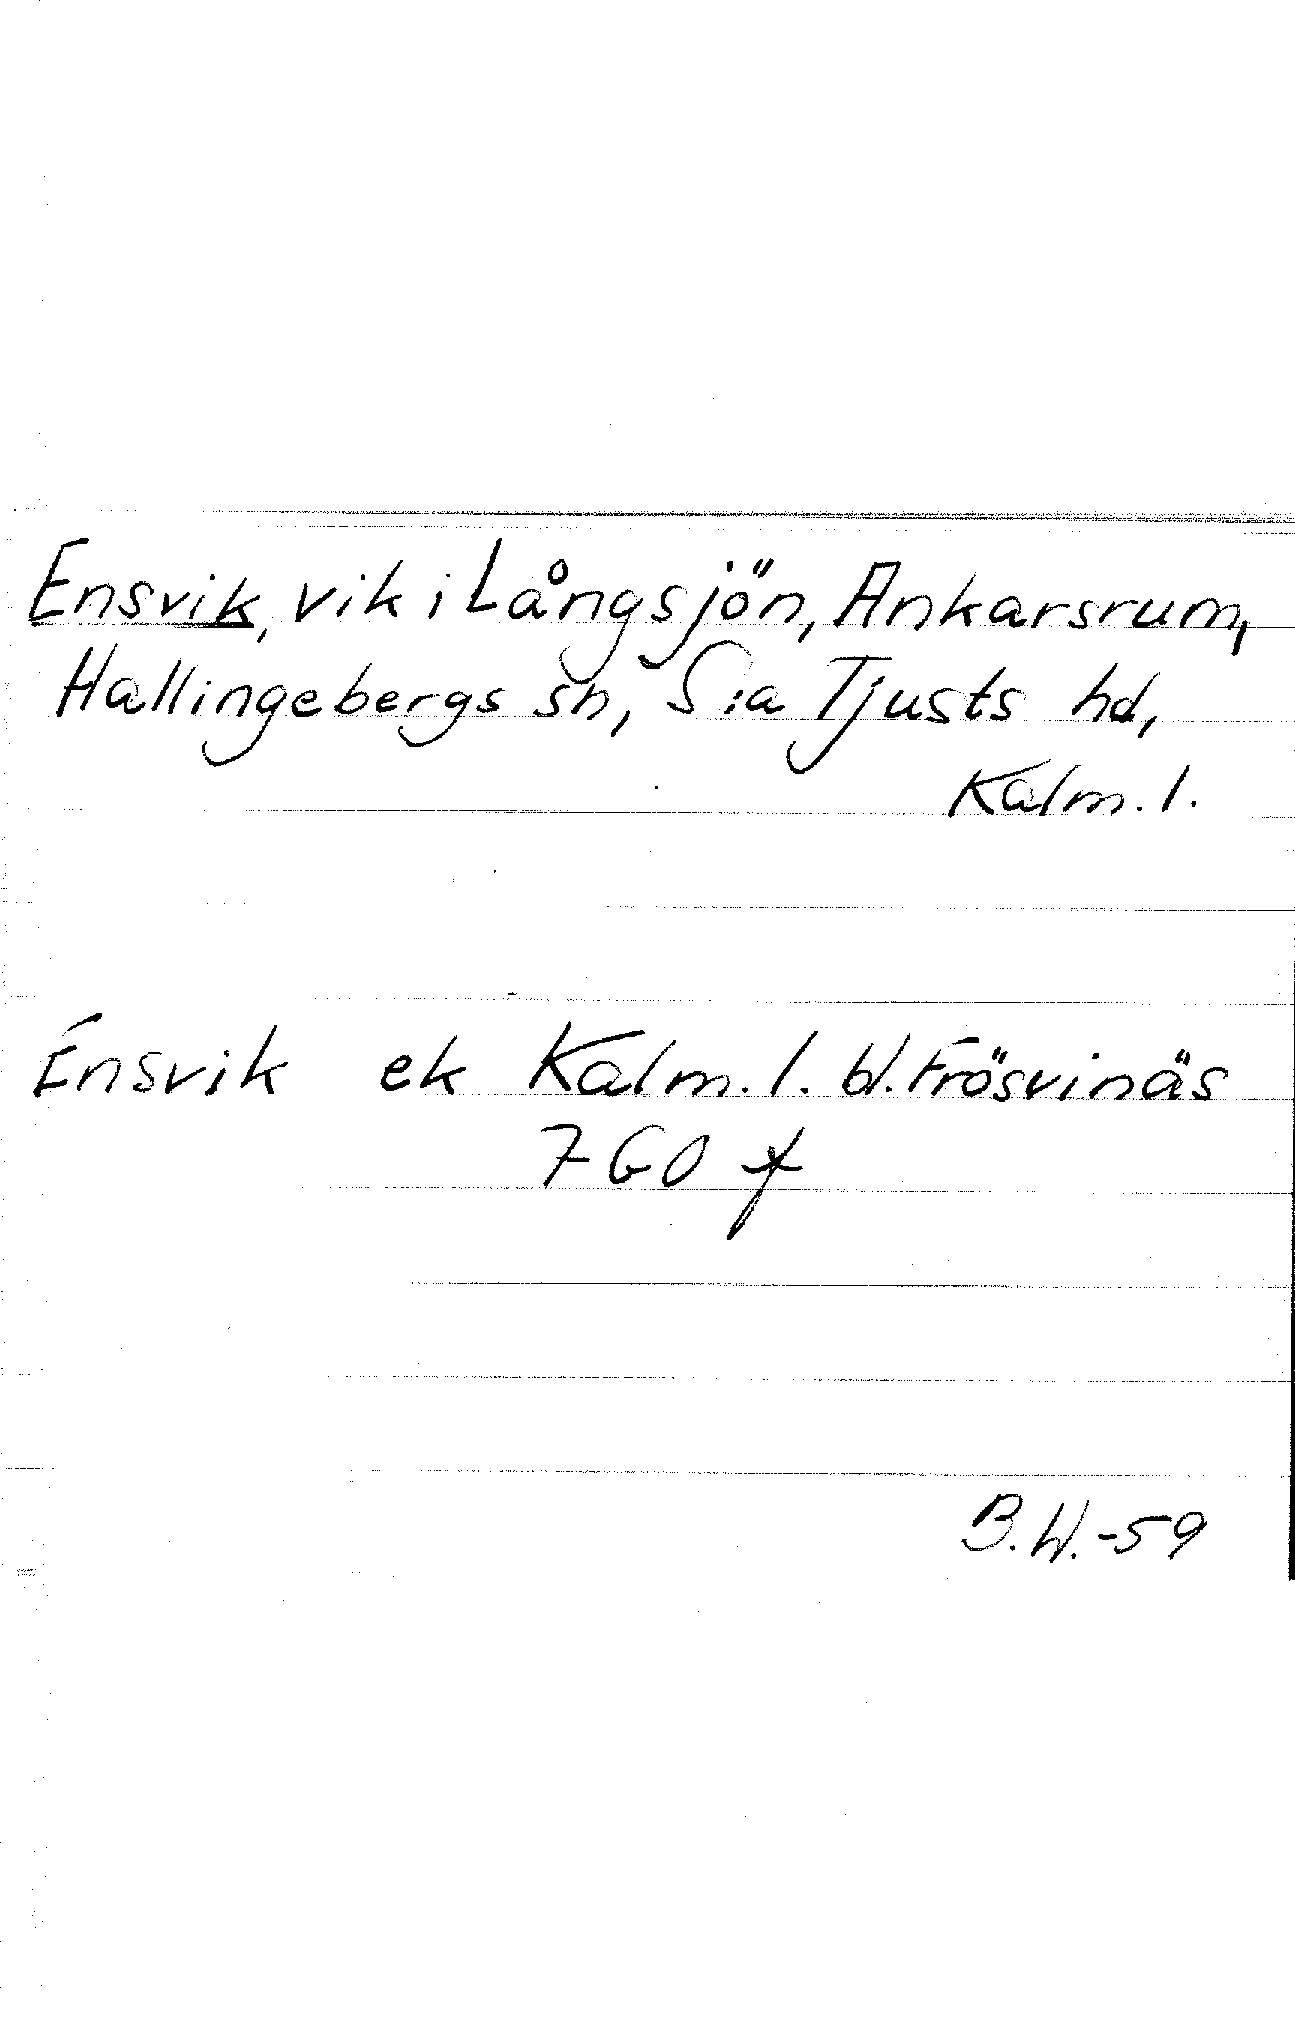 Ensvik, vik i Långsjön, Ankarsrum,
Hallingebergs sn, S:a Tjusts hd,
Kalm. l.
Ensvik ek Kalm. l. bl. Frösvinäs
7 G O f
B.W.-59